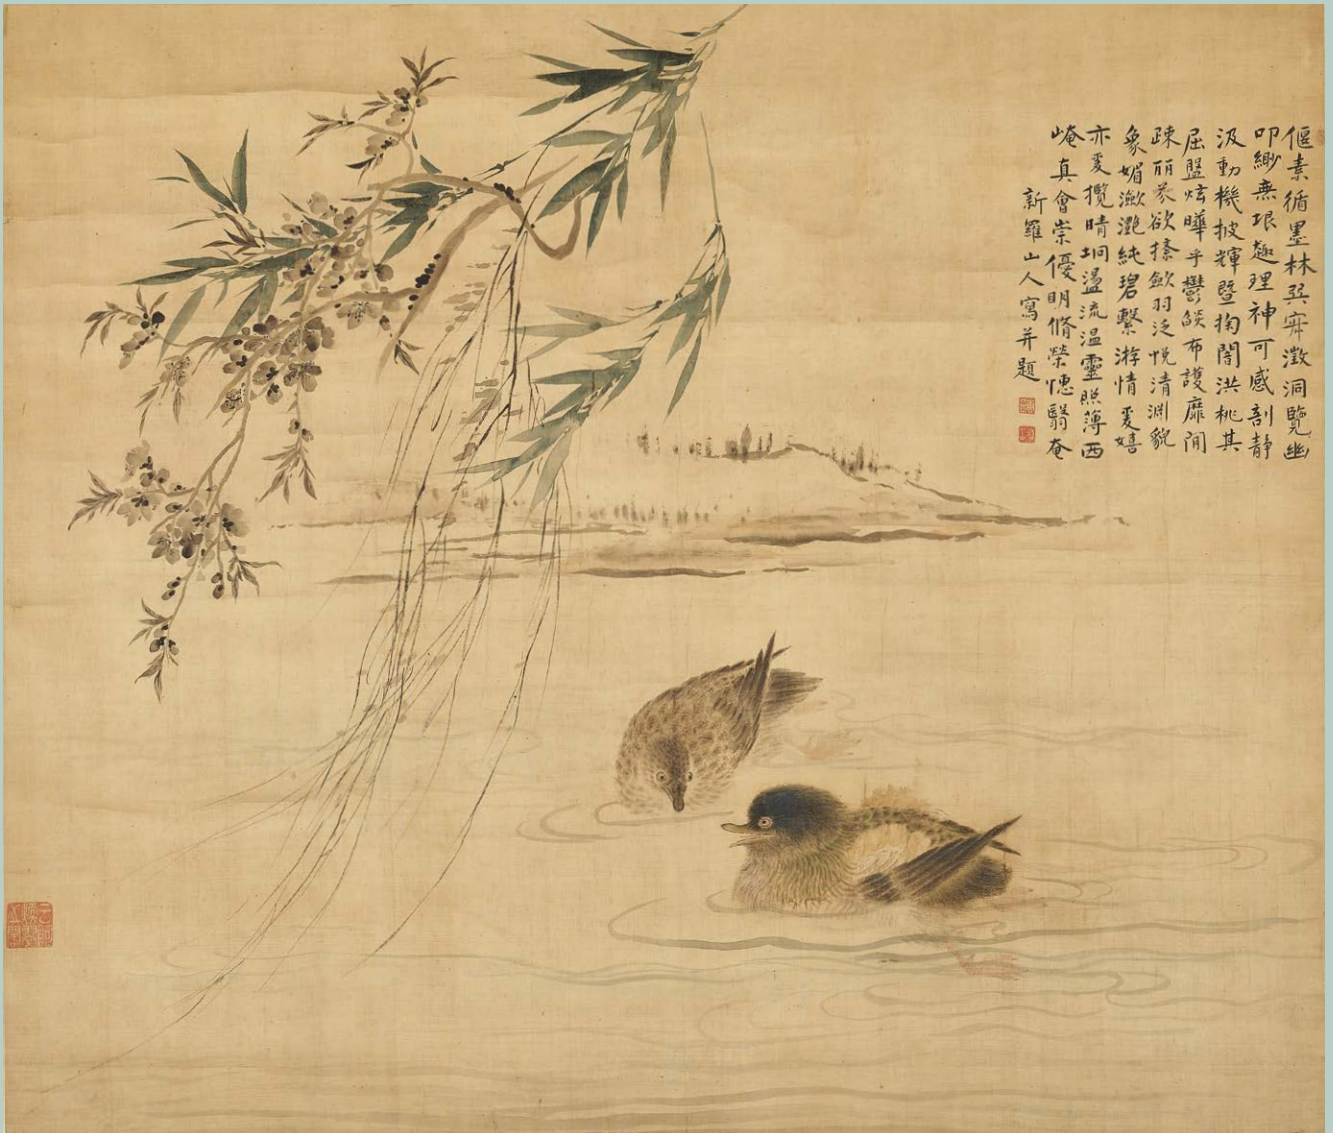 偃素循墨林 寂澂洞覽幽
叩緲無垠趣理神可感剖靜
汲動機披輝暨掬闇洪桃其
屈盤炫曄乎鬱燄布護靡閒
疎丽蕤欲搽歛羽泛悅清淵貌
象媚瀲灔純碧繫游情爰嬉
亦爰攬晴坰溫流溫靈照薄西
崦真會崇優明脩榮憓翳奄
新羅山人寫并題